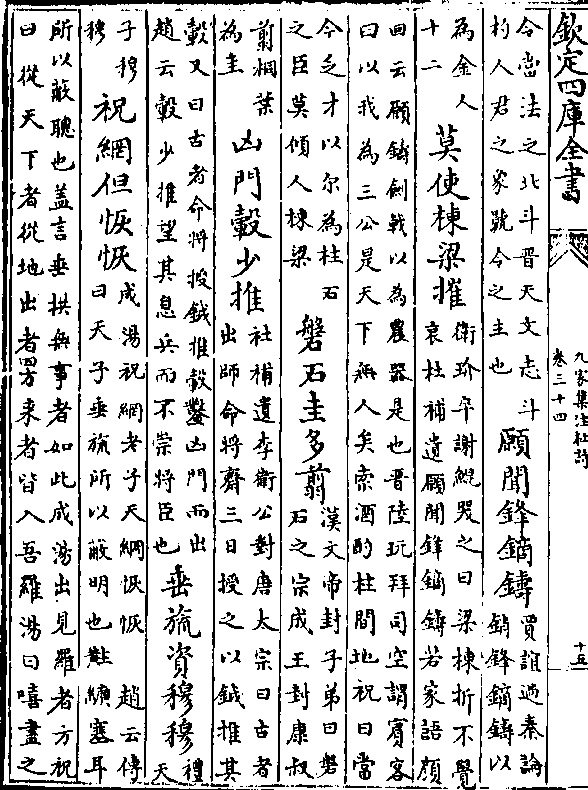 欽定四庫全書
九家集注杜詩
卷三十四
十五
令當法之北斗晋天文志斗
杓人君之象號令之主也
願聞鋒鏑鑄
賈誼過秦論
銷鋒鏑鑄以
為金人
十二
莫使棟梁摧
衛玠卒謝鯤哭之曰梁棟折不覺
哀杜補遺願聞鋒鏑鑄若家語顔
回云願鑄劍戟以為農器是也晋陸玩拜司空謂賓客
曰以我為三公是天下無人矣索酒酌柱間地祝曰當
今乏才以尔為柱石
之臣莫傾人棟梁
磐石圭多翦
漢文帝封子弟曰磐
石之宗成王封康叔
翦桐葉
為圭
凶門轂少推
杜補遺李衛公對唐太宗曰古者
出師命將齋三日授之以鉞推其
轂又曰古者命將授鉞推轂鑿凶門而出
趙云轂少推望其息兵而不崇將臣也
垂旒資穆穆
禮
天
子穆
穆
祝網但恢恢
成湯祝網老子天網恢恢 趙云傳
曰天子垂旒所以蔽明也黈纊塞耳
所以蔽聰也盖言垂拱無事者如此成湯出見羅者方祝
曰從天下者從地出者四方来者皆入吾羅湯曰嘻盡之